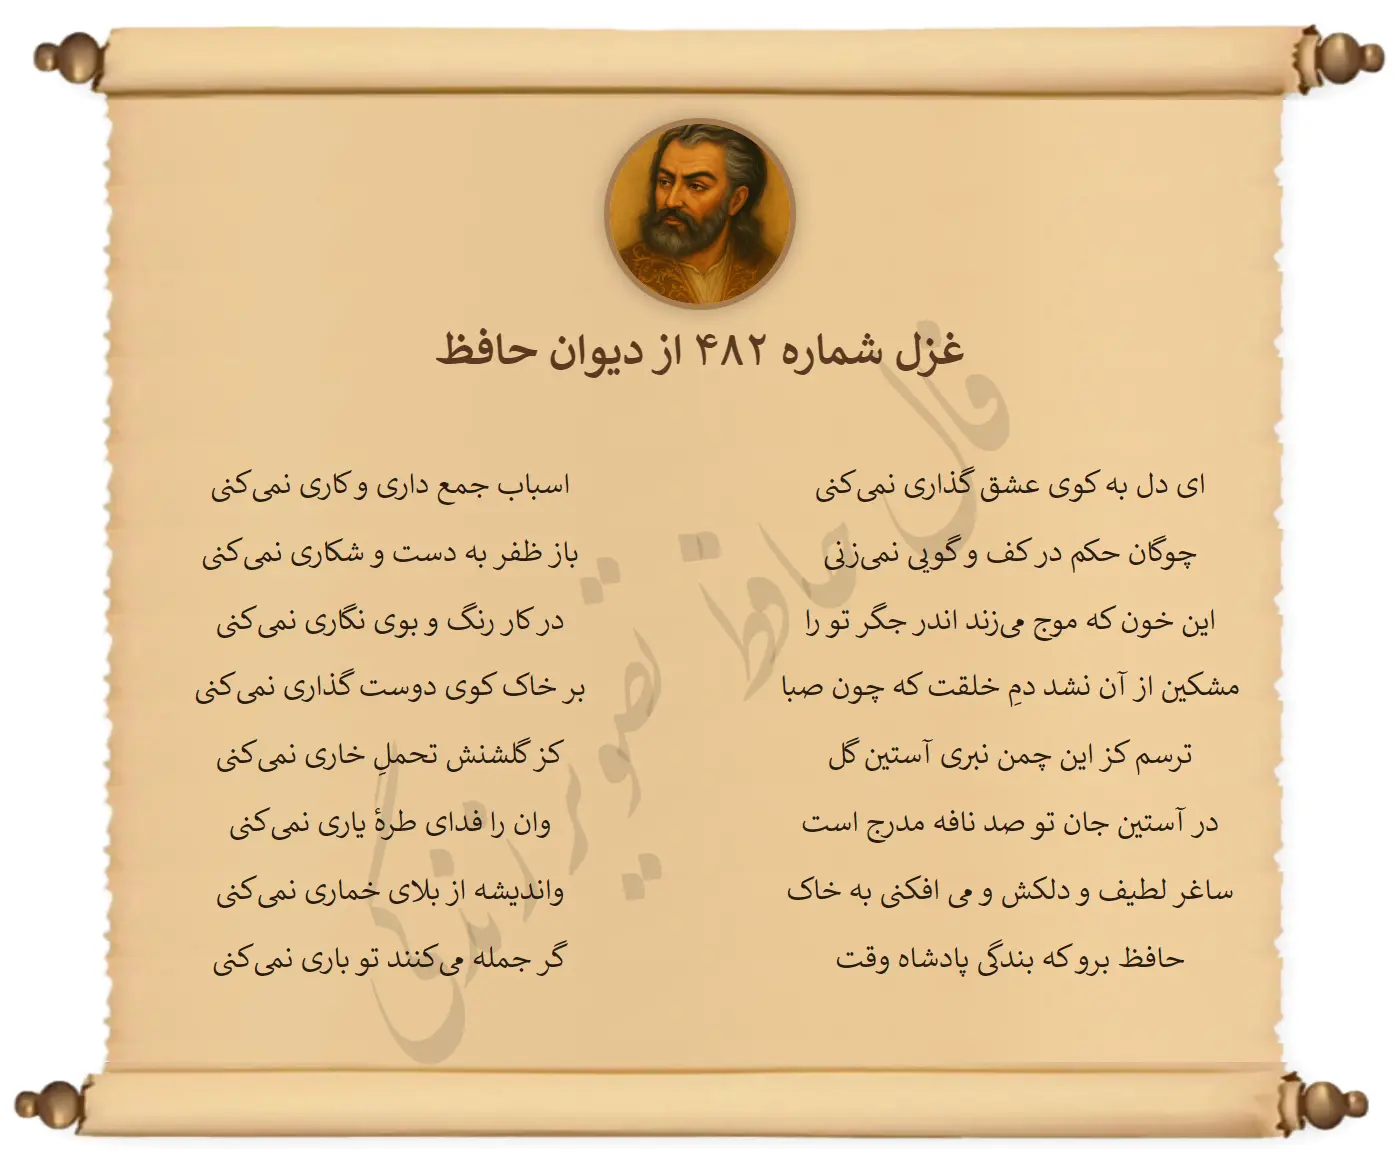 غزل شماره ۴۸۲ از دیوان حافظ
ای دل به کوی عشق گذاری نمی‌کنی
اسباب جمع داری و کاری نمی‌کنی
چوگان حکم در کف و گویی نمی‌زنی
باز ظفر به دست و شکاری نمی‌کنی
این خون که موج می‌زند اندر جگر تو را
در کار رنگ و بوی نگاری نمی‌کنی
مشکین از آن نشد دمِ خلقت که چون صبا
بر خاک کوی دوست گذاری نمی‌کنی
ترسم کز این چمن نبری آستین گل
کز گلشنش تحملِ خاری نمی‌کنی
در آستین جان تو صد نافه مدرج است
وان را فدای طرهٔ یاری نمی‌کنی
ساغر لطیف و دلکش و می افکنی به خاک
واندیشه از بلای خماری نمی‌کنی
حافظ برو که بندگی پادشاه وقت
گر جمله می‌کنند تو باری نمی‌کنی
فال حافظ تصویر زندگی